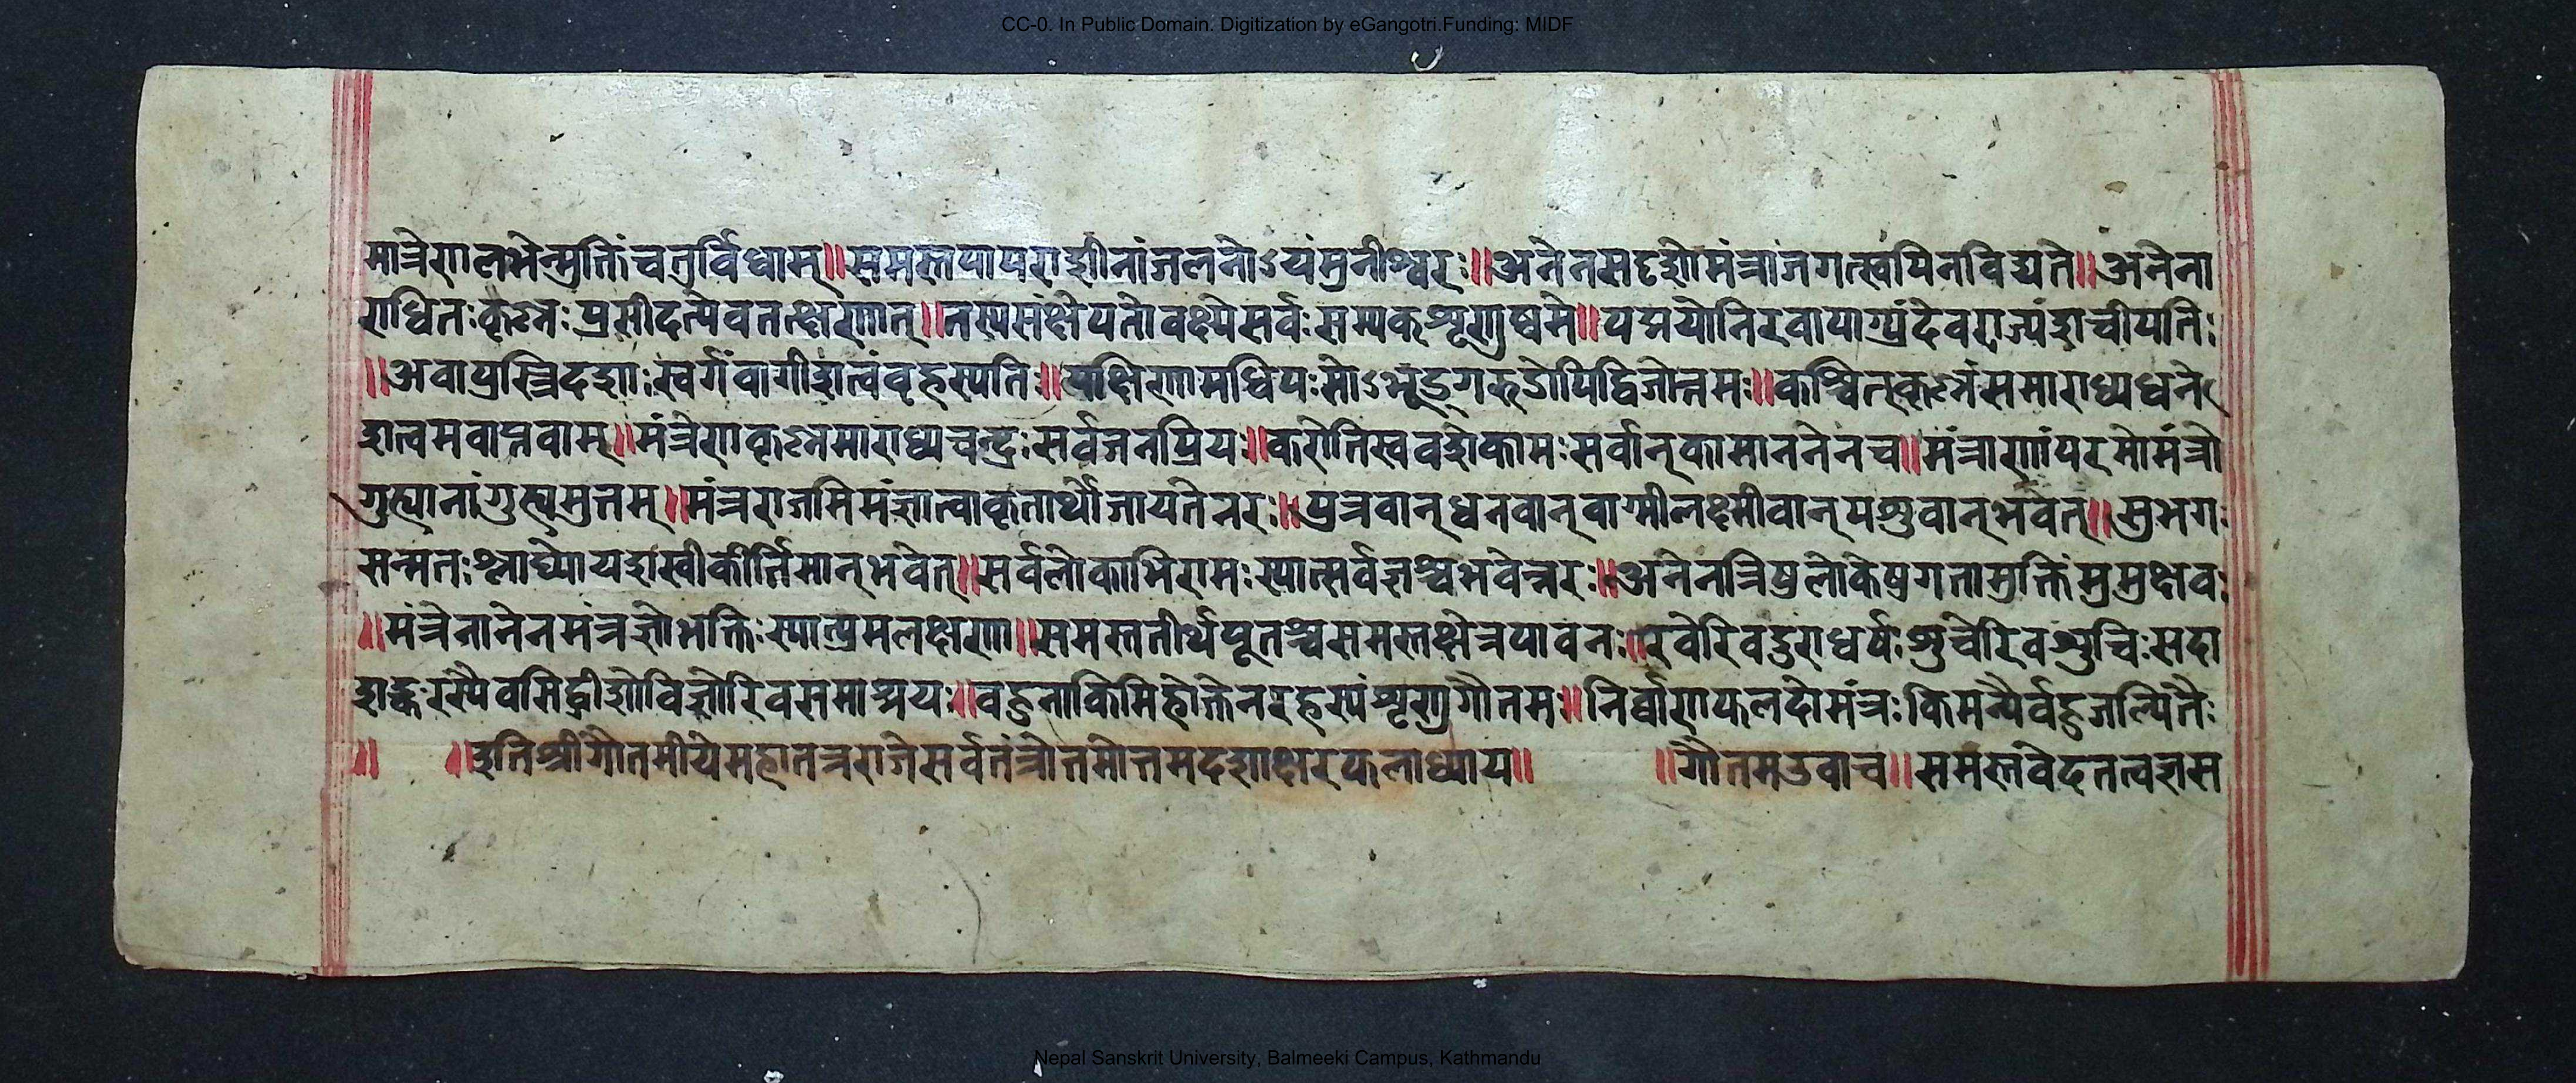 CC-0. In Public Domain. Digitization by eGangotri.Funding: MIDF
मात्रेणालभेन्मुक्तिंचतुर्विधाम्॥समस्तपापराशीनांजलनोऽयंमुनीश्वरः॥अनेनसदृशोमंत्राजगत्स्वपिनविद्यते॥अनेना
राधितःकृष्णःप्रसीदत्येवतत्क्षणात्॥तस्यसंक्षेपतोवक्ष्येसर्वःसम्यकशृणुष्वमे॥पद्मयोनिरवापाग्र्यंदेवराज्यंशचीपतिः
॥अवापुस्त्रिदशाःस्वर्गंवागीशत्वंवृहस्पतिः॥पक्षिणामधिपःसोऽभूद्गरुडोपिद्विजोत्तमः॥कश्चित्कृष्णंसमाराध्यधने
शत्वमवाप्तवाम्॥मंत्रेणकृष्णमाराध्यचन्द्रःसर्वजनप्रियः॥करोतिस्ववशेकामःसर्वान्कामाननेनच॥मंत्राणांपरमोमंत्रो
गुह्यानांगुह्यमुतमम्॥मंत्रराजमिमंज्ञात्वाकृतार्थोजायतेनरः॥पुत्रवान्धनवान्वाग्मीलक्ष्मीवान्पशुवान्भवेत्॥सुभगः
सन्मतःश्लाघ्योयशस्वीकीर्तिमान्भवेत्॥सर्वलोकाभिरामःस्यात्सर्वज्ञश्चभवेन्नरः॥अनेनत्रिषुलोकेषुगतामुक्तिंमुमुक्षवः
॥मंत्रेनानेनमंत्रज्ञोभक्तिःस्यात्प्रेमलक्षणा॥समस्ततीर्थपूतश्चसमस्तक्षेत्रपावनः॥रवेरिवदुराधर्षःशुचेरिवशुचिःसदा
शङ्करस्यैवसिद्धीशोविष्णोरिवसमाश्रयः॥वहुनाकिमिहोक्तेनरहस्यंशृणुगौतमः॥निर्वाणफलदोमंत्रःकिमन्यैर्वहुजल्पितैः
॥ ॥इतिश्रीगौतमीयेमहातन्त्रराजेसर्वतंत्रोत्तमोत्तमदशाक्षरफलाध्याय॥ ॥गौतमउवाच॥समस्तवेदतत्वज्ञस
Nepal Sanskrit University, Balmeeki Campus, Kathmandu